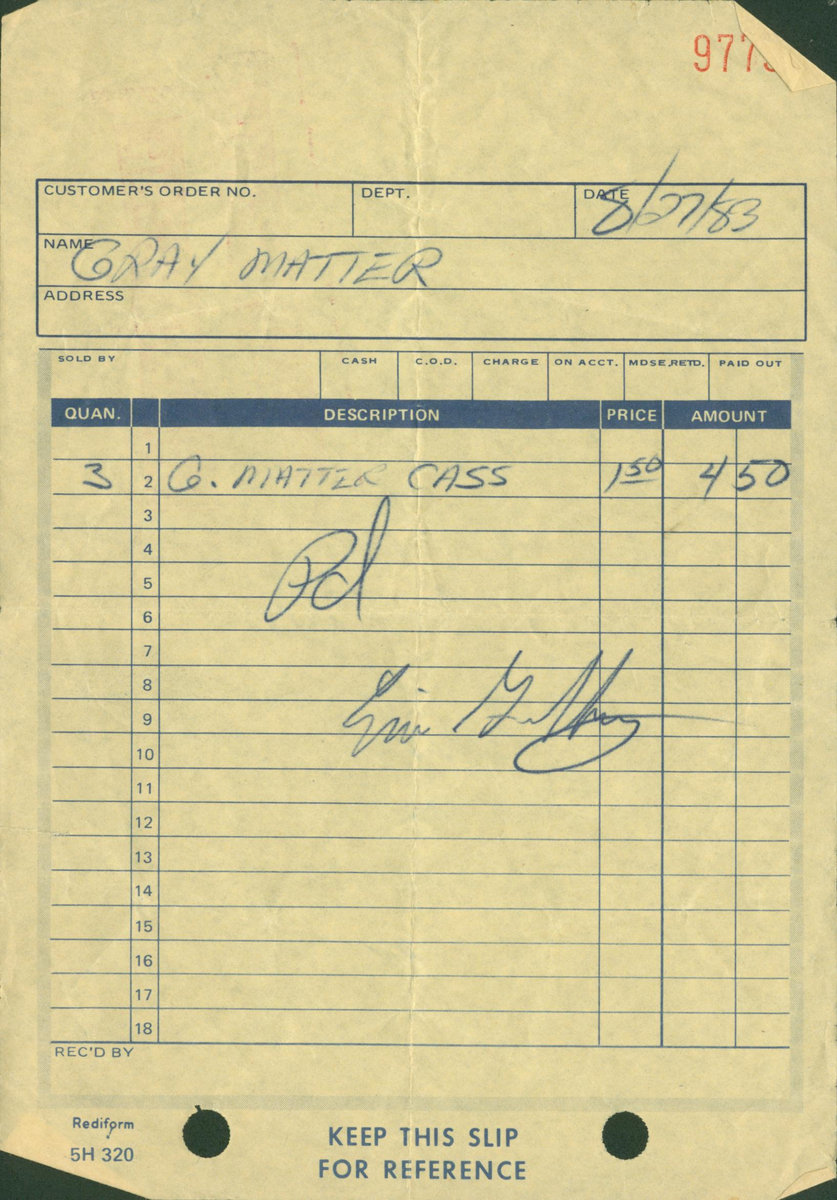 977
CUSTOMER'S ORDER NO. DEPT. DATE 8/27/83
NAME GRAY MATTER
ADDRESS
SOLD BY CASH C.O.D. CHARGE ON ACCT. MDSE.RETD. PAID OUT
QUAN. DESCRIPTION PRICE AMOUNT
1
3 2 G. MATTER CASS 1 50 4 50
3
4
Pd
5
6
7
8
9
10
11
12
13
14
15
16
17
18
REC'D BY
Rediform
5H 320
KEEP THIS SLIP
FOR REFERENCE